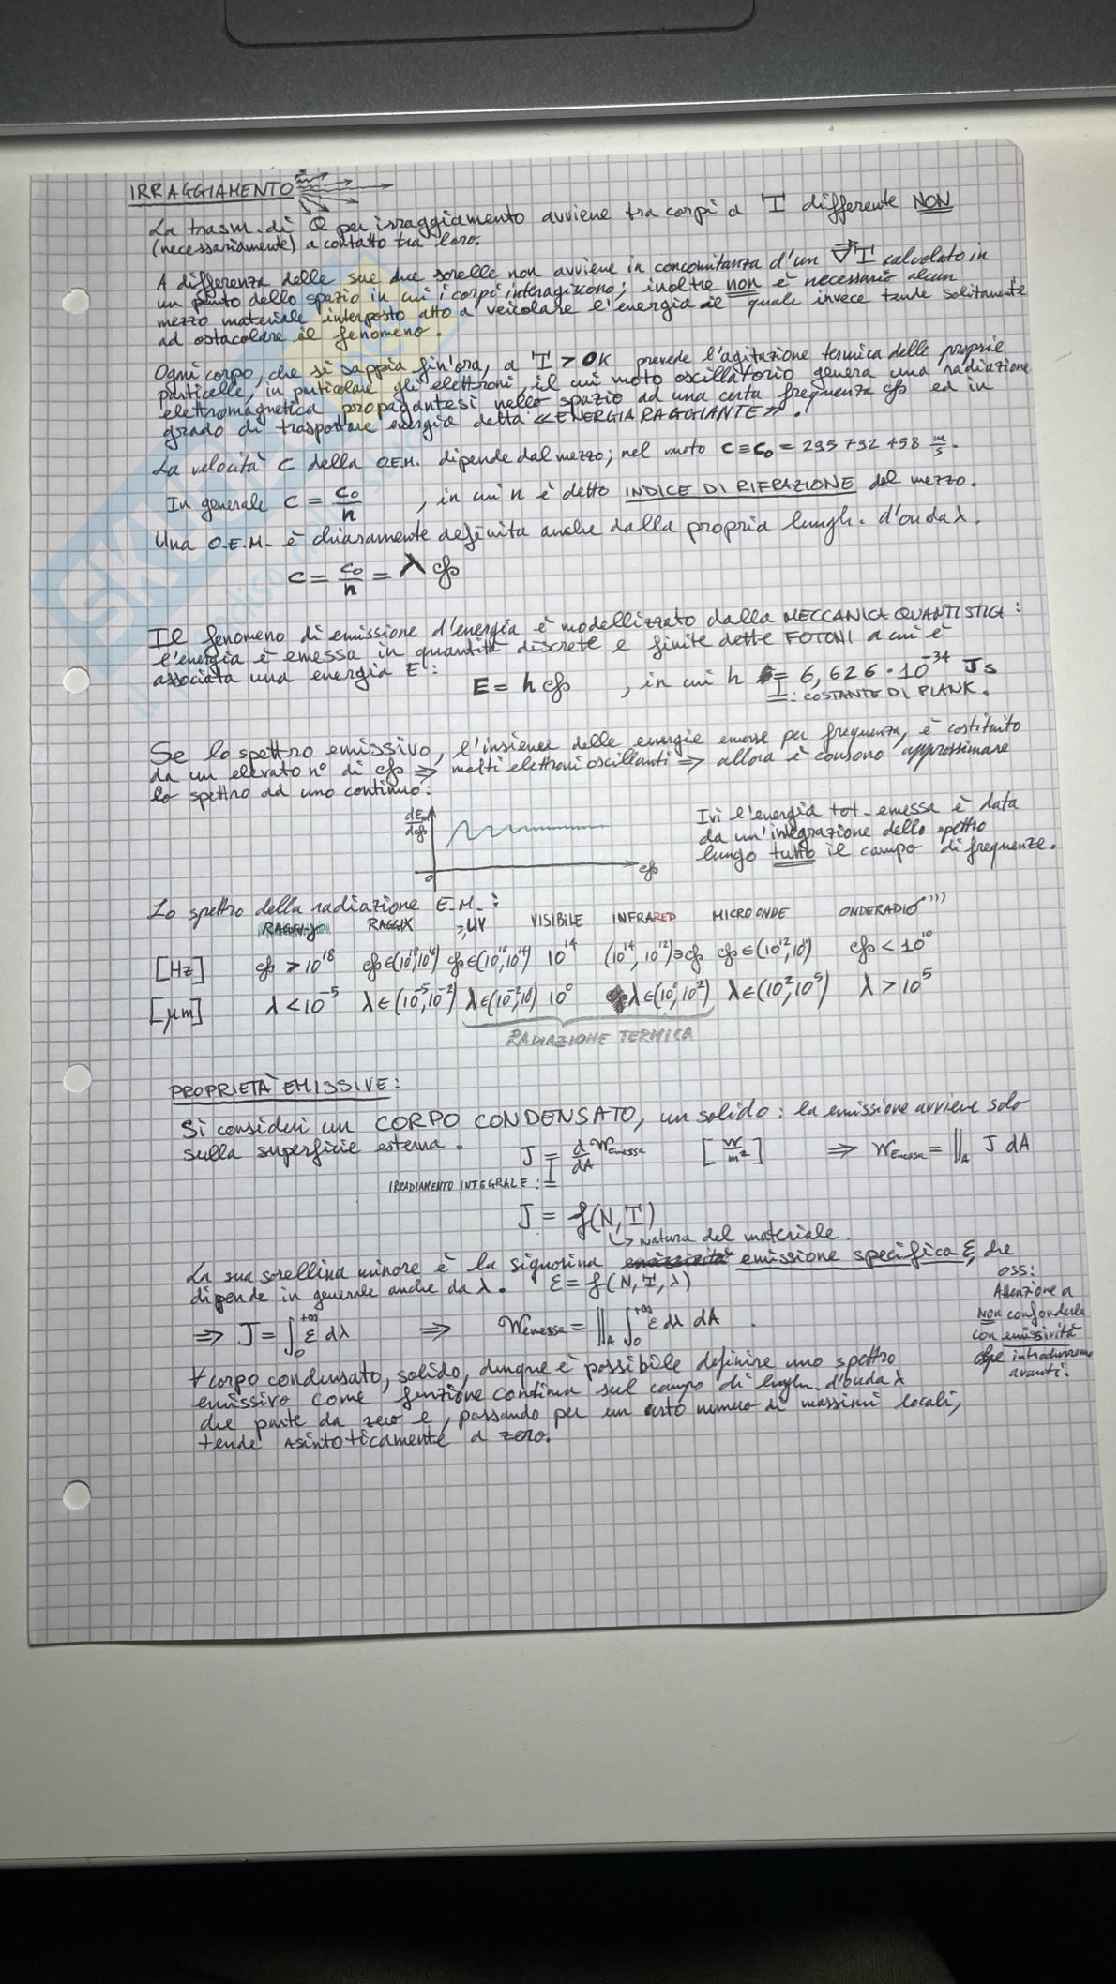 IRRAGGIAMENTO
La trasm. di Q per irraggiamento avviene tra corpi a T differente NON
(necessariamente) a contatto tra loro.
A differenza delle sue due sorelle non avviene in concomitanza d'un ∇T calcolato in
un punto dello spazio in cui i corpi interagiscono; inoltre non è necessario alcun
mezzo materiale interposto atto a veicolare l'energia il quale invece tende solitamente
ad ostacolare il fenomeno.
Ogni corpo, che si sappia fin'ora, a T > 0K prevede l'agitazione termica delle proprie
particelle, in particolare gli elettroni, il cui moto oscillatorio genera una radiazione
elettromagnetica propagantesi nello spazio ad una certa frequenza φ ed in
grado di trasportare energia detta «ENERGIA RAGGIANTE».
La velocità C della O.E.M. dipende dal mezzo; nel vuoto C ≡ C₀ = 299 792 458 m/s.
In generale C = C₀/n , in cui n è detto INDICE DI RIFRAZIONE del mezzo.
Una O.E.M. è chiaramente definita anche dalla propria lungh. d'onda λ.
C = C₀/n = λφ
Il fenomeno di emissione d'energia è modellizzato dalla MECCANICA QUANTISTICA:
l'energia è emessa in quantità discrete e finite dette FOTONI a cui è
associata una energia E:
E = hφ , in cui h = 6,626·10⁻³⁴ Js
: COSTANTE DI PLANK.
Se lo spettro emissivo, l'insieme delle energie emesse per frequenza, è costituito
da un elevato n° di φ ⇒ molti elettroni oscillanti ⇒ allora è consono approssimare
lo spettro ad uno continuo:
dE/dφ
Ivi l'energia tot. emessa è data
da un'integrazione dello spettro
lungo tutto il campo di frequenze.
0 φ
Lo spettro della radiazione E.M.:
RAGGI γ RAGGI X UV VISIBILE INFRARED MICROONDE ONDERADIO
[Hz] φ > 10¹⁸ 10¹⁴ (10¹⁴, 10¹²)∋φ φ < 10¹⁰
[μm] λ < 10⁻⁵ λ∈(10⁻⁵,10⁻²) λ∈(10⁻²,10⁰) 10⁰ λ∈(10⁰,10²) λ∈(10²,10⁵) λ > 10⁵
RADIAZIONE TERMICA
PROPRIETÀ EMISSIVE:
Si consideri un CORPO CONDENSATO, un solido: la emissione avviene solo
sulla superficie esterna.
J = d/dA W emessa [W/m²] ⇒ W Emessa = ∬_A J dA
IRRADIAMENTO INTEGRALE :
J = f(N,T)
↳ Natura del materiale.
La sua sorellina minore è la signorina emissione specifica ε, che
dipende in generale anche da λ. ε = f(N,T,λ)
⇒ J = ∫₀^{+∞} ε dλ ⇒ W emessa = ∬_A ∫₀^{+∞} ε dλ dA .
oss:
Attenzione a
Non confonderla
con emissività
che introdurremo
avanti.
∀ corpo condensato, solido, dunque è possibile definire uno spettro
emissivo come funzione continua sul campo di lungh. d'onda λ
che parte da zero e, passando per un certo numero di massimi locali,
tende asintoticamente a zero.